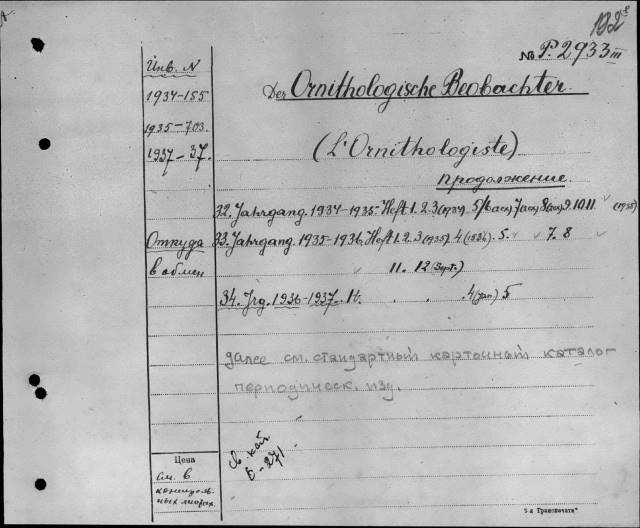 № P. 2933 III
Инв. N
1934-155
1935-703.
1937-37.
Der Ornithologische Beobachter.
(L'Ornithologiste)
продолжение.
32. Jahrgang. 1934-1935. Heft 1. 2. 3 (1934). 9. 10. 11. (1935)
Откуда
33. Jahrgang. 1935-1936. Heft 1. 2. 3 (1935) 4 (1936). 5. 7. 8
в обмен
11. 12 (Sept.)
34. Jrg. 1936-1937. H. 4 (Jan) 5
далее см. стандартный карточный каталог
периодическ. изд.
Цена
см. в
6-271
5-я Транспечать"